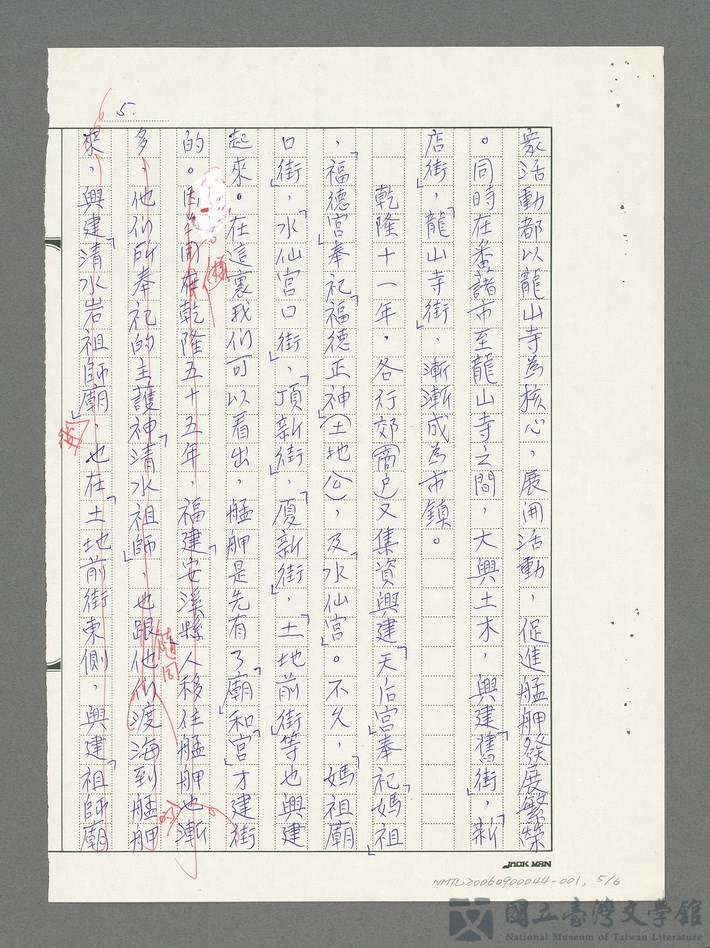 5.
衆活動都以龍山寺為核心，展開活動，促進艋舺發展繁榮
。同時在番藷市至龍山寺之間，大興土木，興建「舊街」，「新
店街」，「龍山寺街」，漸漸成為市鎮。
乾隆十一年，各行郊(商戶)又集資興建「天后宮」奉祀「媽祖」
，「福德宮」奉祀「福德正神」(土地公)，及「水仙宮」。不久，「媽祖廟
口街」，「水仙宮口街」，「頂新街」，「廈新街」，「土地前街」等也興建
起來。在這裏我們可以看出，艋舺是先有了「廟」和「宮」才建街
的。乾隆五十五年，福建「安溪縣」人移往艋舺也漸
多，他們所奉祀的主護神「清水祖師」，也跟他們渡海到艋舺
隨同
的
來，興建「清水岩祖師廟」，也在「土地前街」東側，興建祖師廟
JACK MAN
NMTL20060900044-001, 5/6
國立臺灣文學館
National Museum of Taiwan Literature